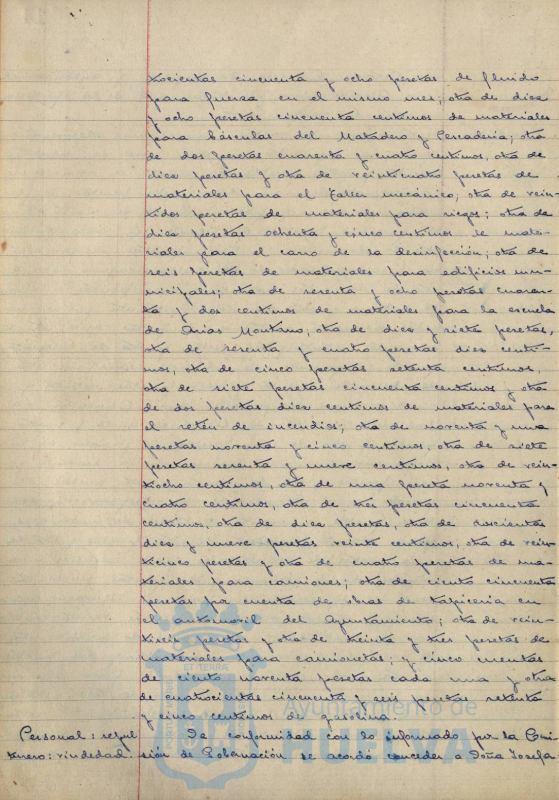 trocientas cincuenta y ocho pesetas de fluido
para fuerza en el mismo mes; otra de diez
y ocho pesetas cincuenta centimos de materiales
para básculas del Matadero y Pescaderia; otra
de dos pesetas cuarenta y cuatro centimos, otra de
diez pesetas y otra de veinticuatro pesetas de
materiales para el taller mecánico; otra de vein-
tidos pesetas de materiales para riegos; otra de
diez pesetas ochenta y cinco centimos de mate-
riales para el carro de la desinfección; otra de
seis pesetas de materiales para edificios mu-
nicipales; otra de sesenta y ocho pesetas cuaren-
ta y dos centimos de materiales para la escuela
de Arias Montano; otra de diez y siete pesetas,
otra de sesenta y cuatro pesetas diez centi-
mos, otra de cinco pesetas setenta centimos,
otra de siete pesetas cincuenta centimos y otra
de dos pesetas diez centimos de materiales para
el retén de incendios; otra de noventa y una
pesetas noventa y cinco centimos, otra de siete
pesetas sesenta y nueve centimos, otra de vein-
tiocho centimos, otra de una peseta noventa y
cuatro centimos, otra de tres pesetas cincuenta
centimos, otra de diez pesetas, otra de doscientas
diez y nueve pesetas veinte centimos, otra de vein-
ticinco pesetas y otra de cuatro pesetas de ma-
teriales para camiones; otra de ciento cincuenta
pesetas por cuenta de obras de tapiceria en
el automovil del Ayuntamiento; otra de vein-
tiseis pesetas y otra de treinta y tres pesetas de
materiales para camionetas; y cinco cuentas
de ciento noventa pesetas cada una y otra
de cuatrocientas cincuenta y seis pesetas setenta
y cinco centimos de gasolina.
Personal: De conformidad con lo informado por la Comi-
viudedad. sión de Gobernación se acordó conceder a Doña Josefa
Ayuntamiento de
HUELVA